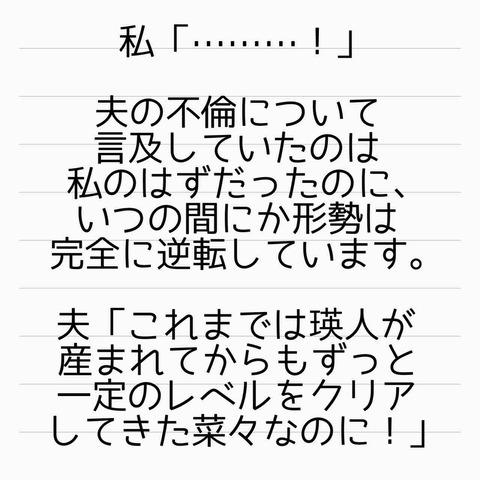 私「………！」
夫の不倫について
言及していたのは
私のはずだったのに、
いつの間にか形勢は
完全に逆転しています。
夫「これまでは瑛人が
産まれてからもずっと
一定のレベルをクリア
してきた菜々なのに！」